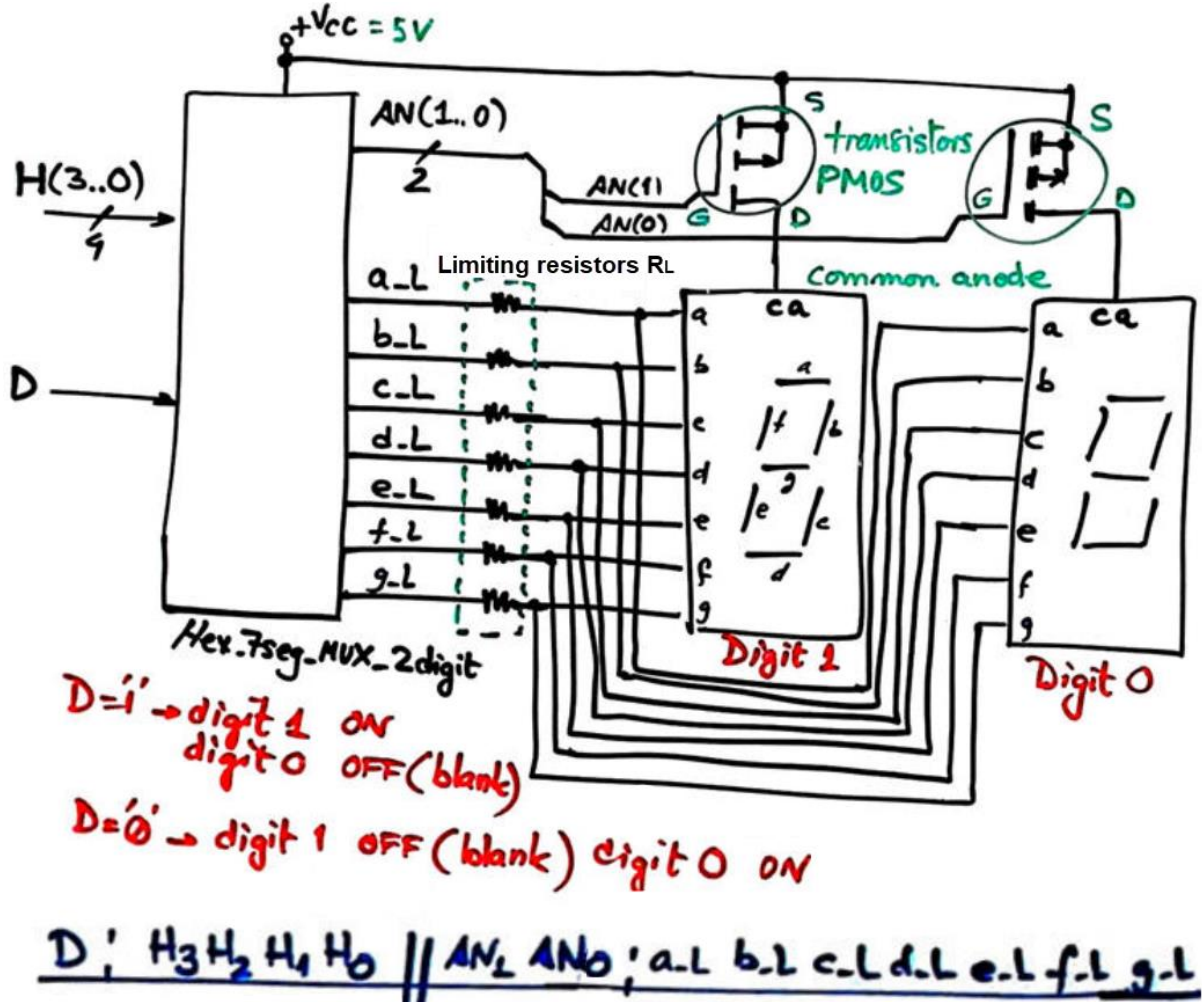 +Vcc = 5V
AN(1..0)
2
H(3..0)
4
D
AN(1)
AN(0)
G
S
D
transistors
PMOS
S
G
D
Limiting resistors RL
common anode
a_L
b_L
c_L
d_L
e_L
f_L
g_L
ca
a
b
c
d
e
f
g
a
f
b
g
e
c
d
ca
a
b
c
d
e
f
g
Hex_7seg_MUX_2digit
Digit 1
Digit 0
D='1' → digit 1 ON
digit 0 OFF (blank)
D='0' → digit 1 OFF (blank) digit 0 ON
D; H3 H2 H1 H0 || AN1 AN0; a_L b_L c_L d_L e_L f_L g_L